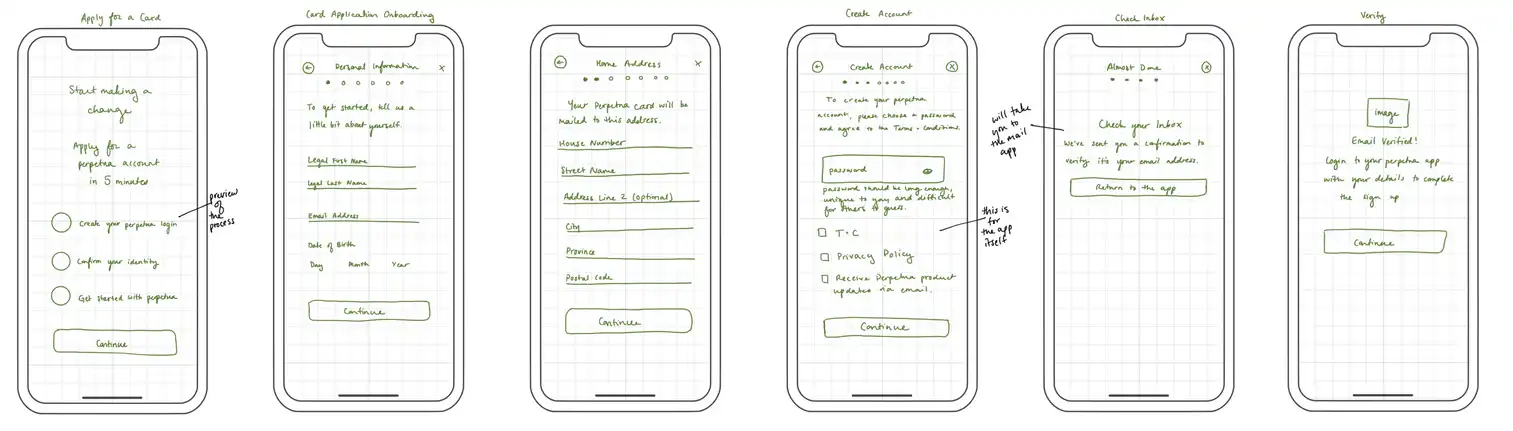 Apply for a Card
Start making a
change
Apply for a
perpetua account
in 5 minutes
Create your perpetua login
Confirm your identity
Get started with perpetua
Continue
preview
of
the
process
Card Application Onboarding
Personal Information
x
To get started, tell us a
little bit about yourself.
Legal First Name
Legal Last Name
Email Address
Date of Birth
Day Month Year
Continue
Home Address
x
Your Perpetua Card will be
mailed to this address.
House Number
Street Name
Address Line 2 (optional)
City
Province
Postal Code
Continue
Create Account
Create Account
x
To create your perpetua
account, please choose a password
and agree to the Terms + Conditions.
password
password should be long enough,
unique to you and difficult
for others to guess.
T+C
Privacy Policy
Receive Perpetua product
updates via email.
Continue
this is
for
the app
itself
will take
you to
the mail
app
Check Inbox
Almost Done
x
Check your Inbox
We've sent you a confirmation to
verify it's your email address.
Return to the app
Verify
image
Email Verified!
Login to your perpetua app
with your details to complete
the sign up
Continue